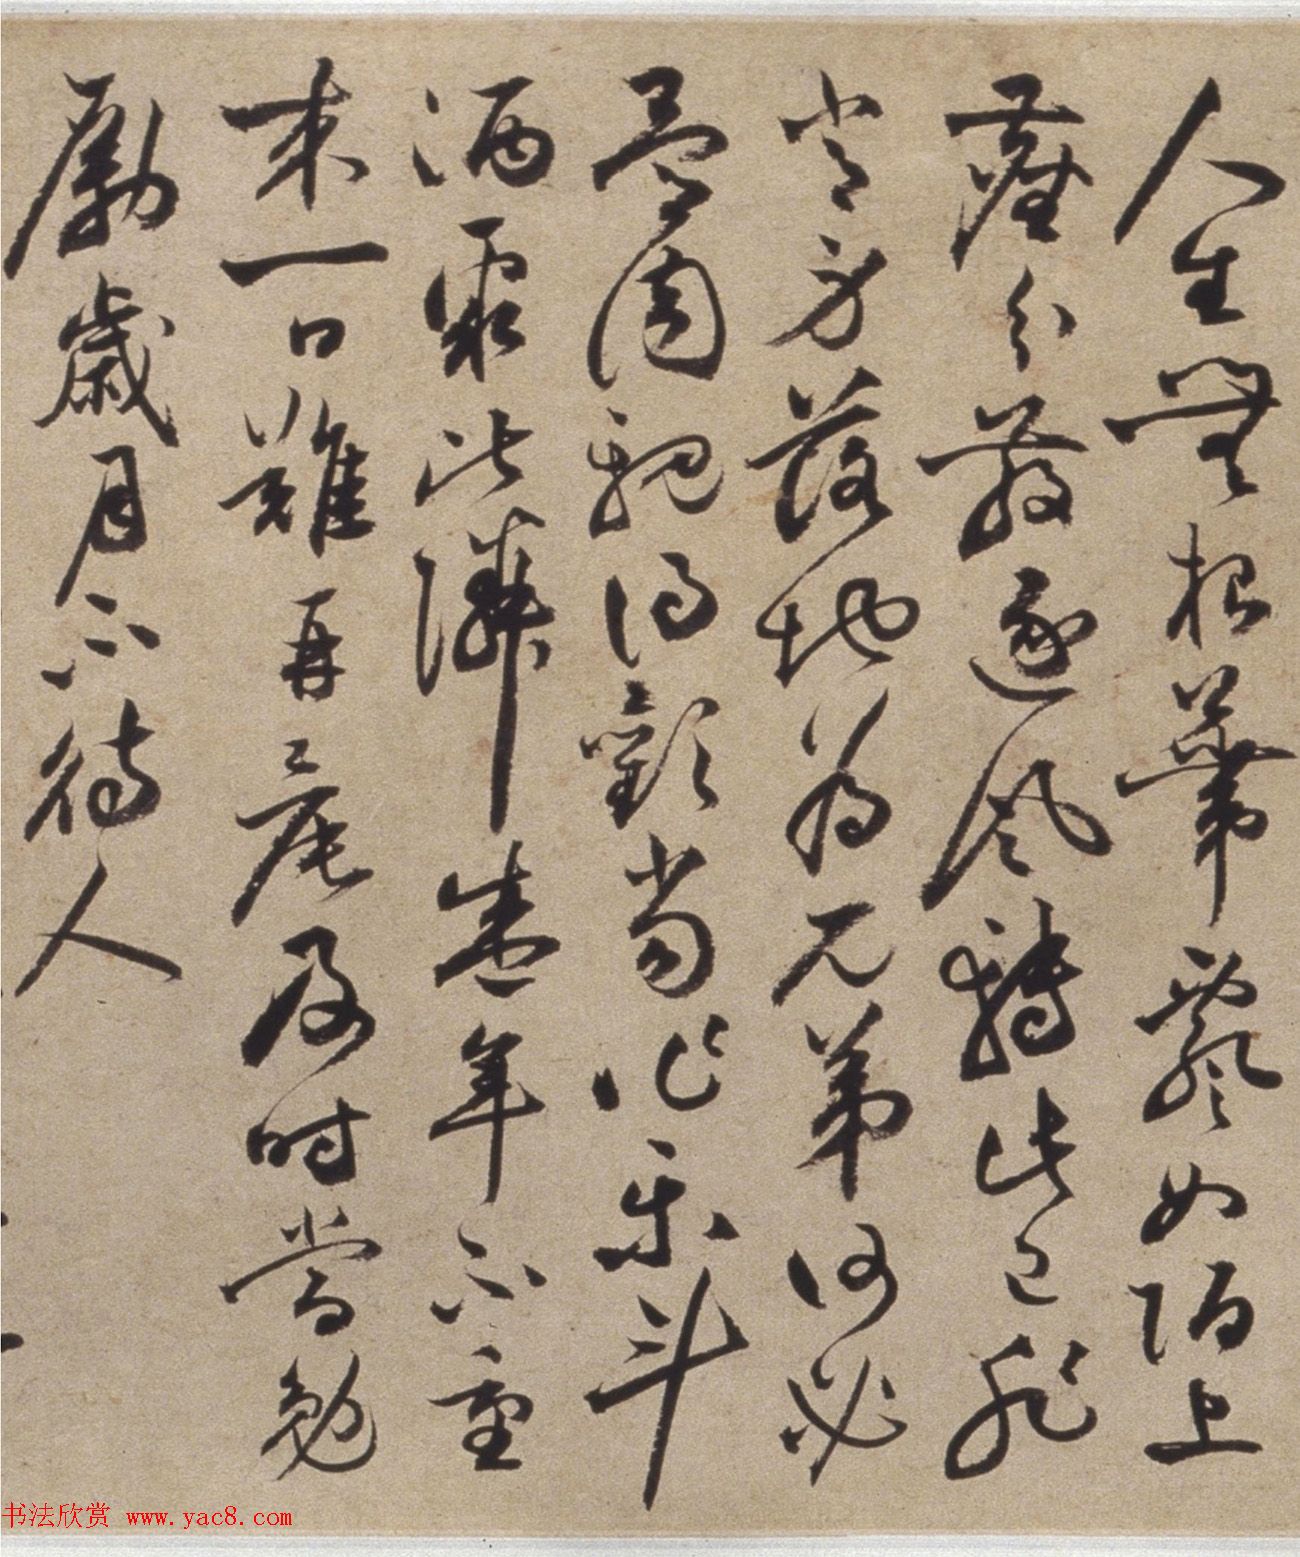 人生無根蔕飄如陌上
塵分散逐風轉此已非
常身落地為兄弟何必
骨肉親得歡當作樂斗
酒聚比隣盛年不重
來一日難再晨及時當勉
勵歲月不待人
书法欣赏 www.yac8.com